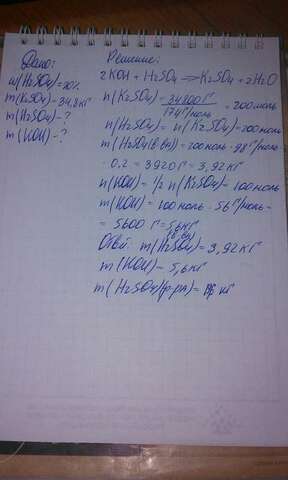 Дано:
w(H2SO4)=20%
m(K2SO4)=34,8кг
m(H2SO4)-?
m(KOH)-?
Решение:
2KOH + H2SO4 => K2SO4 + 2H2O
n(K2SO4) = 34800 г / 174 г/моль = 200 моль
n(H2SO4) = n(K2SO4)=200 моль
m(H2SO4(в-ва)) = 200 моль · 98 г/моль
· 0.2 = 3920 г = 3,92 кг
n(KOH) = 1/2 n(K2SO4)= 100 моль
m(KOH) = 100 моль · 56 г/моль =
= 5600 г = 5,6 кг
Ответ: m(H2SO4) = 3,92 кг
m(KOH) = 5,6 кг
m(H2SO4)(р-ра) = кг